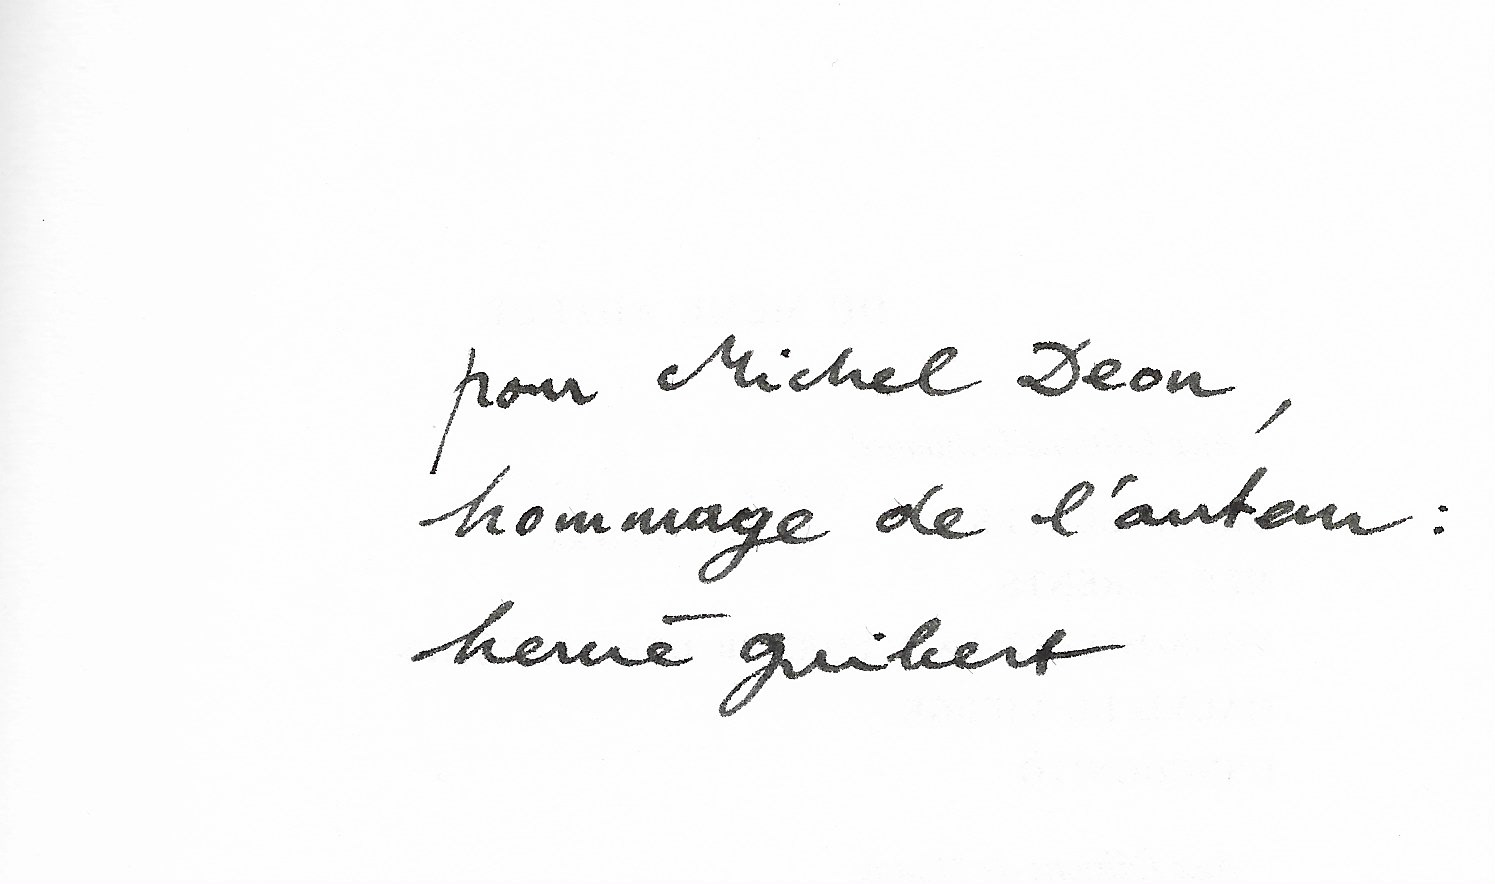 pour Michel Deon,
hommage de l'auteur :
hervé guibert